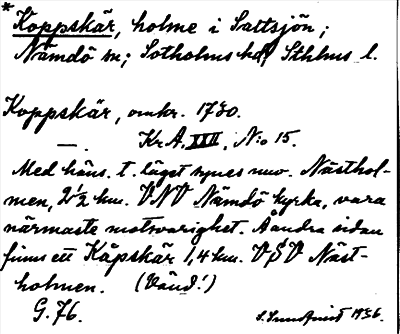 * Koppskär, holme i Saltsjön;
Nämdö sn; Sotholms hd, Sthlms l.
Koppskär, omkr. 1730.
—. Kr.A. XIII. N:o 15.
Med häns. t. läget synes nuv. Nästhol-
men, 2½ km. VNV Nämdö kyrka, vara
närmaste motsvarighet. Å andra sidan
finns ett Kåpskär 1,4 km. VSV Näst-
holmen. (Vänd!)
G. 76. 1936.